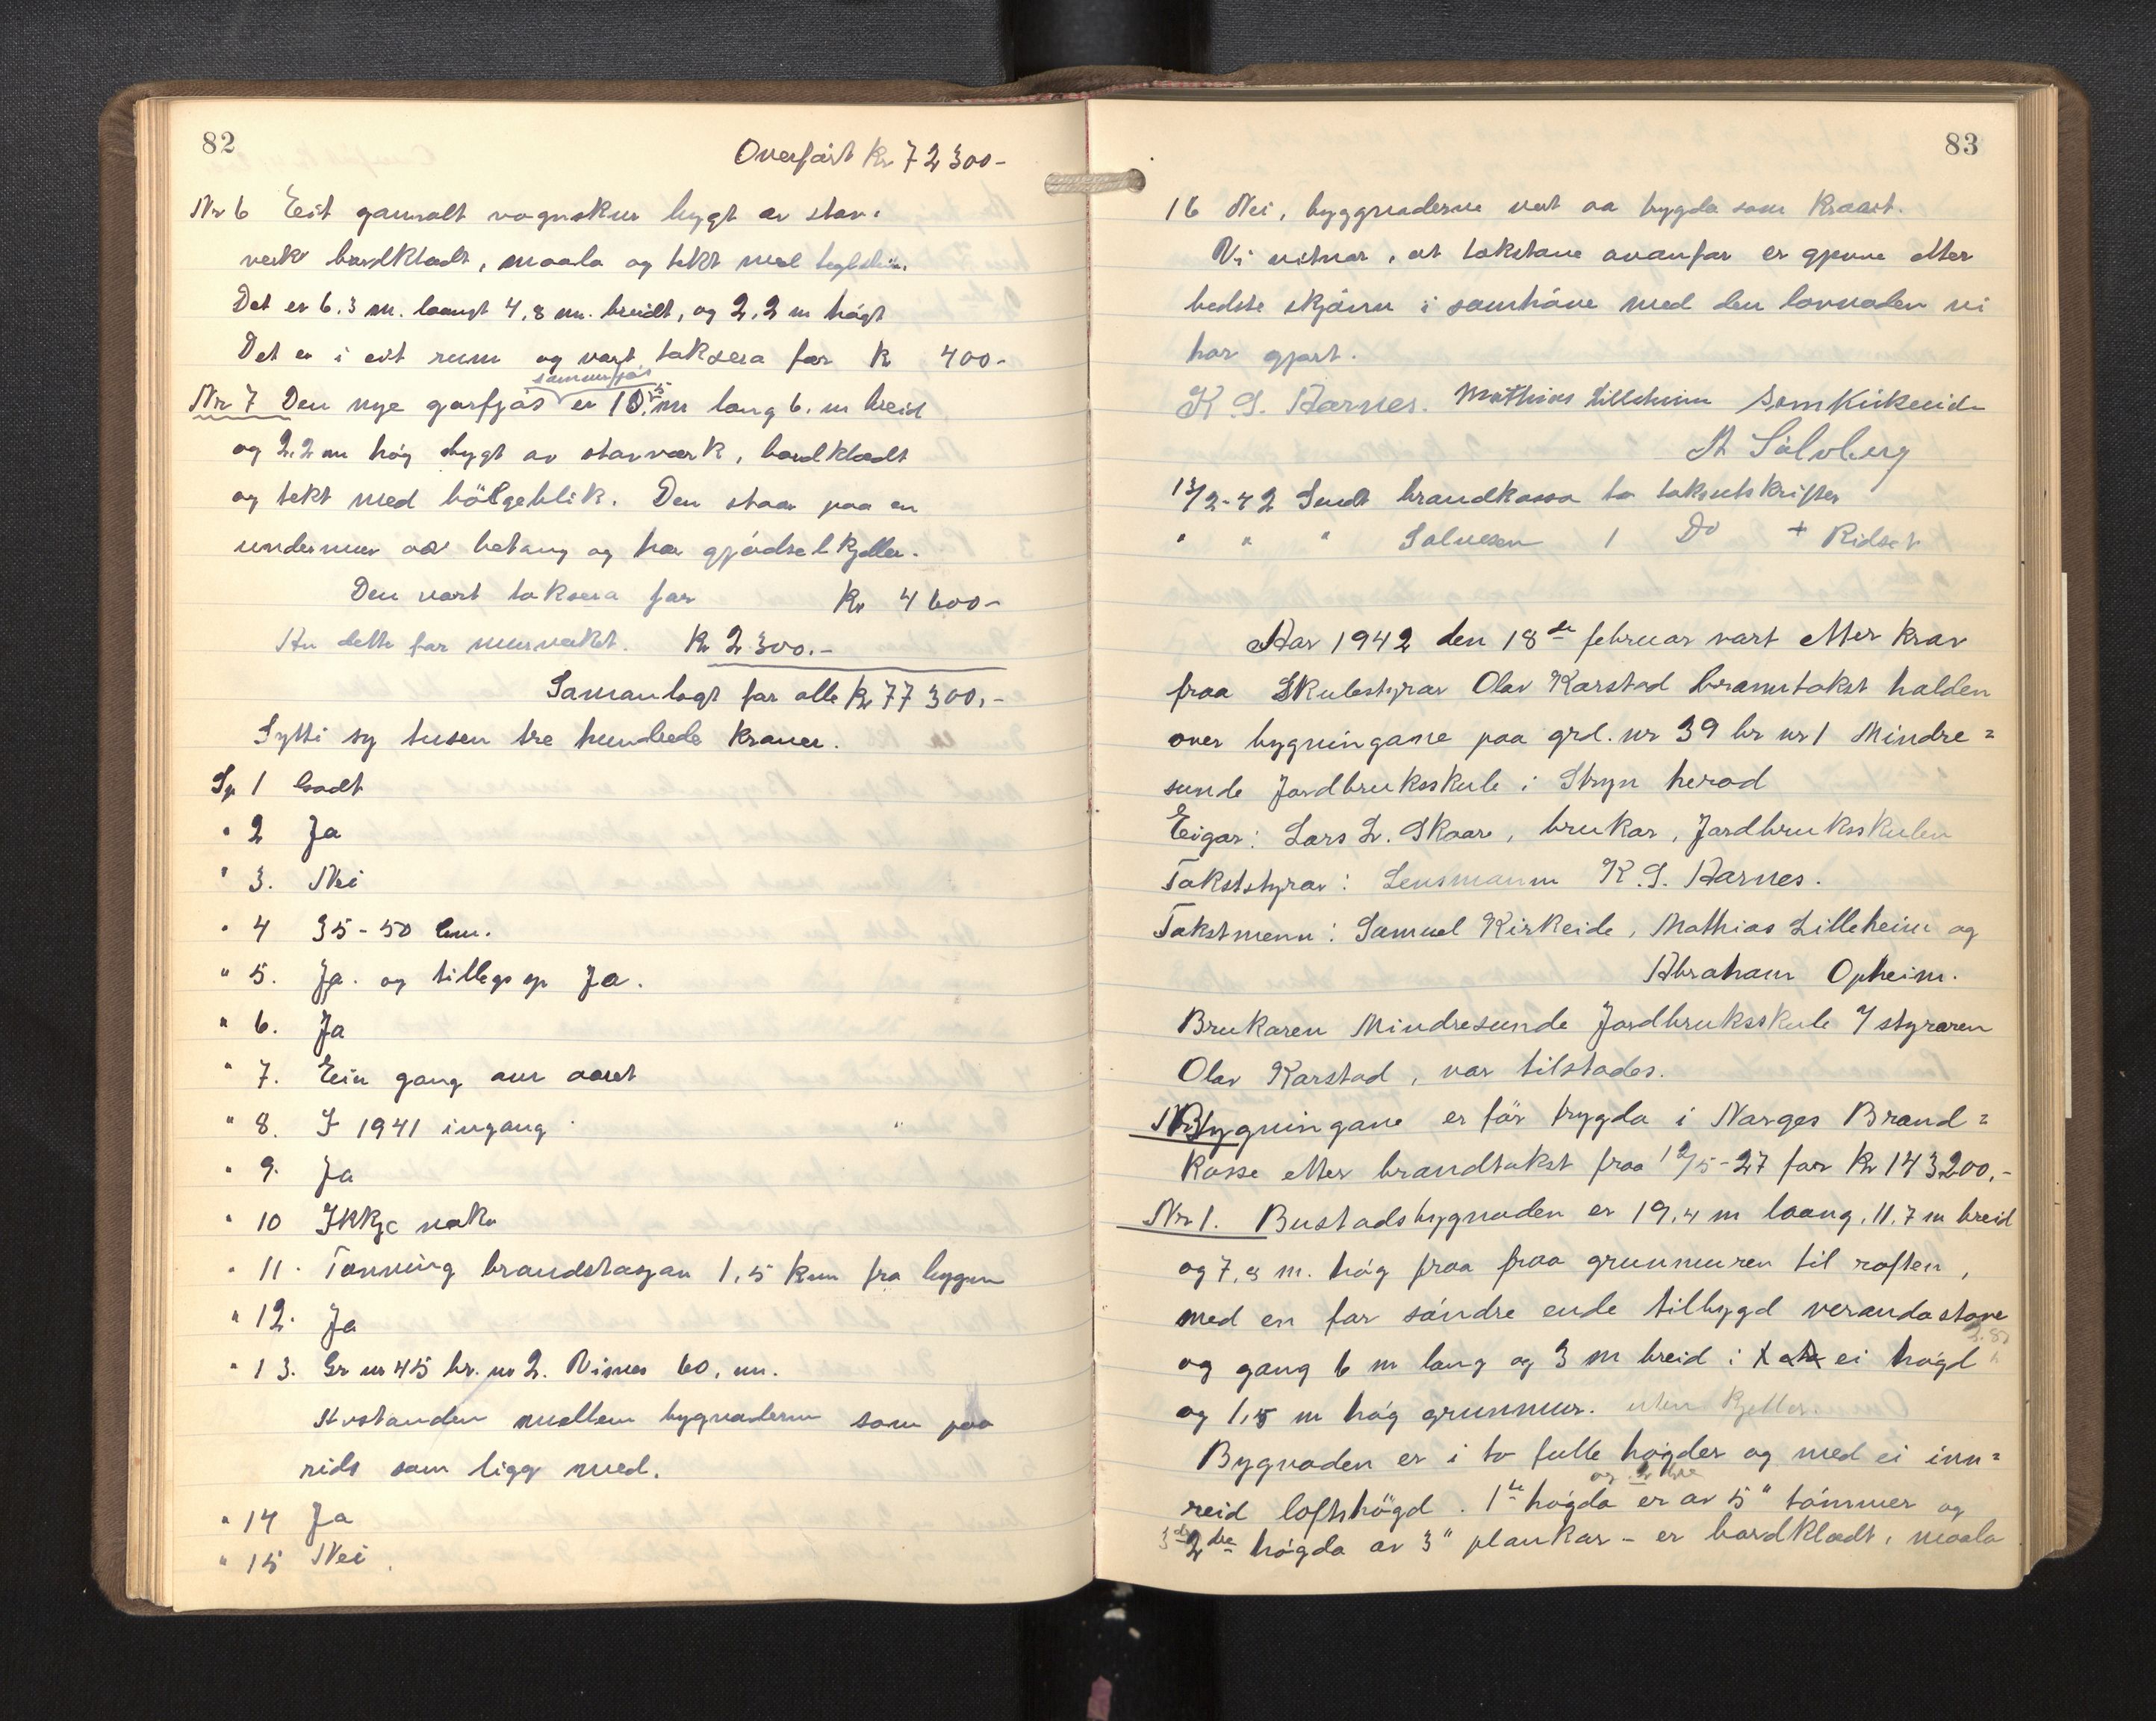 82
Overfört Kr 72 300-
Nr 6 Eit gamalt vognskur bygt av stav-
verk bordklædt, maala og tekt med teglstein.
Det er 6.3 m. laangt 4,8 m. breidt, og 2,2 m högt
Det er i eit rum og vart taksera for K 400-
sommerfjös
Nr 7 Den nye gorfjös er 10,5 m lang 6. m breid
og 2,2 m hög bygt av stavværk, bordklædt
og tekt med bölgeblik. Den staar paa en
undermur av betong og har gjödselkjeller.
Den vart taksera for Kr 4600-
Av dette for murverket. Kr 2 300.-
Samanlagt for alle Kr 77 300,-
Sytti sy tusen tre hundrede kroner.
Sp 1 Godt
" 2 Ja
" 3. Nei
" 4 35-50 cm.
" 5. Ja. og tillegs sp Ja.
" 6. Ja
" 7. Ein gang om aaret
" 8. I 1941 ingang
" 9. Ja
" 10 Ikkje noko
" 11. Tonning brandstasjon 1,5 km fra bygn
" 12. Ja
" 13. Gr nr 45 br. nr 2. Vines 60, m.
Avstanden mellem bygnaderne som paa
rids som ligg med.
" 14 Ja
" 15 Nei.
83
16 Nei, byggnaderne vert aa bygda som kravt.
Vi vitnar, at takstane ovanfor er gjevne etter
bedste skjönn i samhöve med den lovnaden vi
har gjort.
K. S. Aarnes. Mathias Lilleheim Sam Kirkeide
A Sölvberg
13/2-42 Sendt brandkassa to takstutskrifter
" " " Salvesen 1 Do + Ridset
Aar 1942 den 18de februar vart etter krav
fraa Skulestyrar Olav Karstad branntakst halden
over bygningane paa grd. nr 39 br nr 1 Mindre=
sunde Jordbruksskule i Stryn herad
Eigar: Lars L. Skaare, brukar, Jordbruksskulen
Takststyrar: Lensmann K. S. Aarnes.
Takstmenn: Samuel Kirkeide, Mathias Lilleheim og
Abraham Opheim.
Brukaren Mindresunde Jordbruksskule v/ styraren
Olav Karstad, var tilstades.
Bygningane er för trygda i Norges Brand=
kasse etter brandtakst fraa 12/5-27 for Kr 143200,-
Nr 1. Bustadsbygnaden er 19,4 m laang, 11,7 m breid
og 7,8 m. hög fraa fraa grunnmuren til roften,
med en for söndre ende tilbygd verandastove
og gang 6 m lang og 3 m breid i ei högd
og 1,5 m hög grunnmur. uten kjeller.
Bygnaden er i to fulle högder og med ei inn=
reid loftshögd. 1ste högda er av 5" tömmer og
2dre högda av 3" plankar - er bordklædt, maala